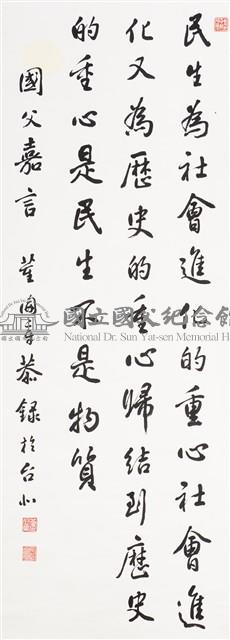 民生為社會進化的重心社會進
化又為歷史的重心歸結到歷史
的重心是民生不是物質
國父嘉言 董開章恭錄於台北
國立國父紀念館
National Dr. Sun Yat-sen Memorial H